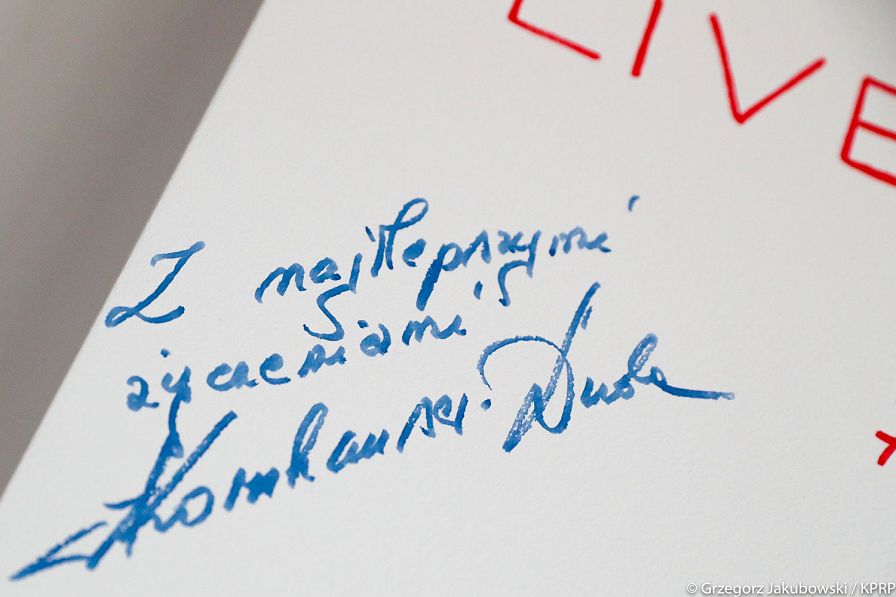 LIVE
Z najlepszymi
życzeniami
Kornhauser-Duda
© Grzegorz Jakubowski / KPRP